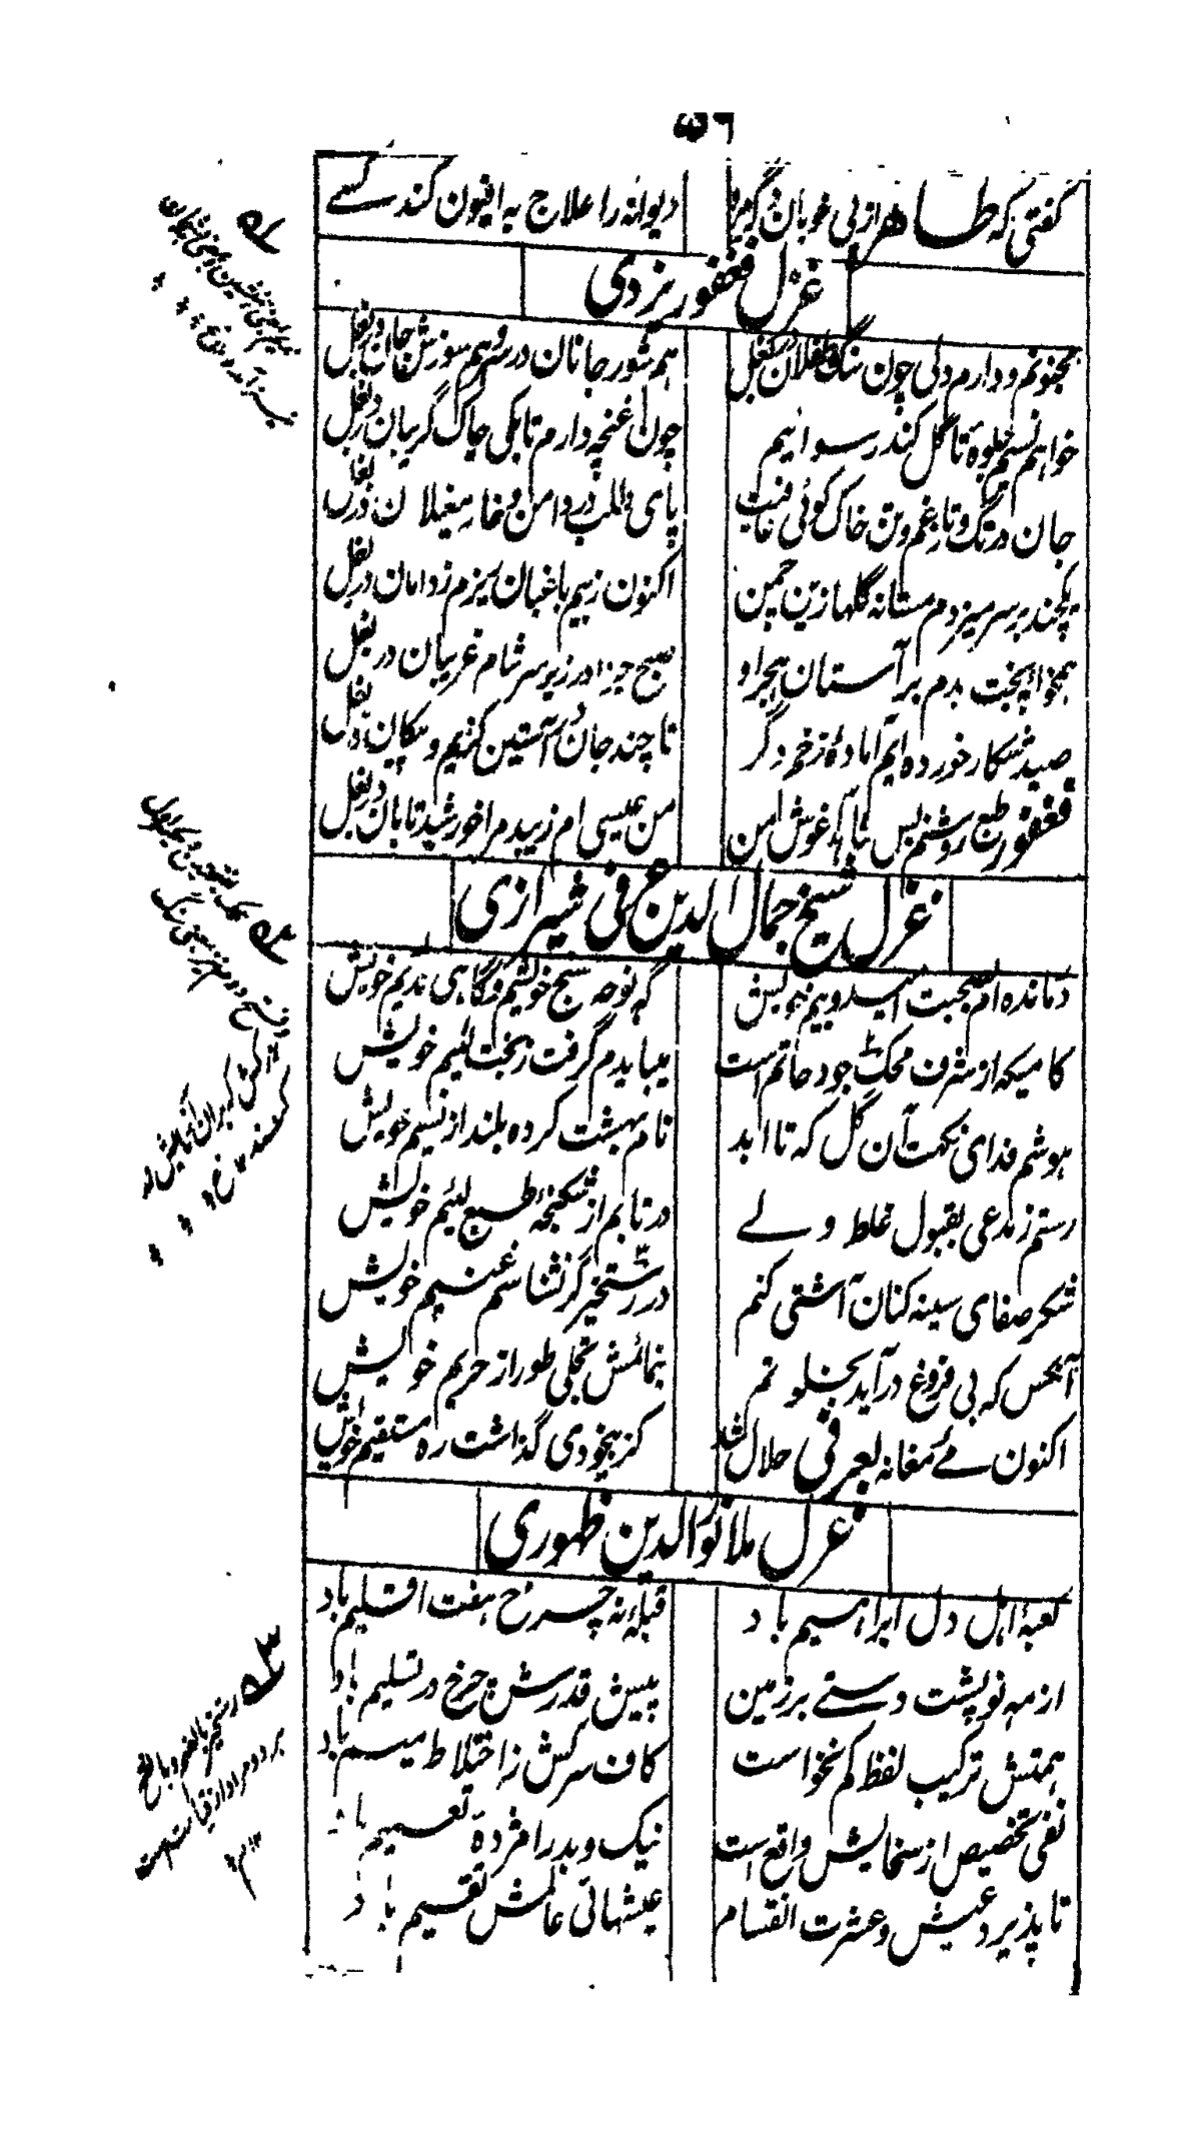 ۵۶
گفتی که طاهر از پی خوبان دگر مرو دیوانه را علاج به افیون کند کسے
غزل فغفور یزدی
مجنونم و دارم دلی چون سنگ طفلان در بغل هم شور جانان در سر و هم سوزش جان در بغل
خواهم نسیم جلوهٔ تا گل کند رسوائیم چون غنچه دارم تا بکی چاک گریبان در بغل
جان در تگ و تاز غم و تن خاک کوئی عافیت پای طلب در دامن و خار مغیلان در بغل
یکچند بر سر میزدم مستانه گلها زین چمن اکنون ز بیم باغبان ریزم ز دامان در بغل
همخوابهٔ بخت بدم بر آستان هجر او صبح جزا در زیر سر شام غریبان در بغل
صید شکار خورده ایم آمادهٔ زخم دگر تا چند جان در آستین کنیم و پیکان در بغل
فغفور طبع روشنم بس شاهد آغوش من من عیسی ام زیبد مرا خورشید تابان در بغل
غزل شیخ جمال الدین عرفی شیرازی
درمانده ام بصحبت امید و بیم خویش گه نوحه سنج خویشم و گاهی ندیم خویش
کامیکه از شرف محک جود حاتم است میبایدم گرفت ز بخت لئیم خویش
هوشم فدای نکهت آن گل که تا ابد نام بهشت کرده بلند از نسیم خویش
رستم ز مدعی بقبول غلط ولے در تابم از شکنجهٔ طبع لئیم خویش
شکر صفای سینه کنان آشتی کنم در رستخیز گر نشناسم غنیم خویش
آنکس که بی فروغ درآید بخلوتم بنمائمش تجلی طور از حریم خویش
اکنون مئے مغانه بعرفی حلال شد کز بیخودی گذاشت ره مستقیم خویش
غزل ملا نورالدین ظهوری
کعبهٔ اهل دل ابراهیم باد قبلهٔ نه چرخ هفت اقلیم باد
از مه نو پشت دستے بر زمین پیش قدرش چرخ در تسلیم باد
همتش ترکیب لفظ کم نخواست کاف سرکش ز اختلاط میم باد
نفی تخصیص از سخایش واقع است نیک و بد را مژدهٔ تعمیم باد
تا پذیرد عیش و عشرت انقسام عیشهائی عالمش تقسیم باد
۵۳ رستخیز بالضم و بالفتح
هر دو مراد از قیامت است
۱۲